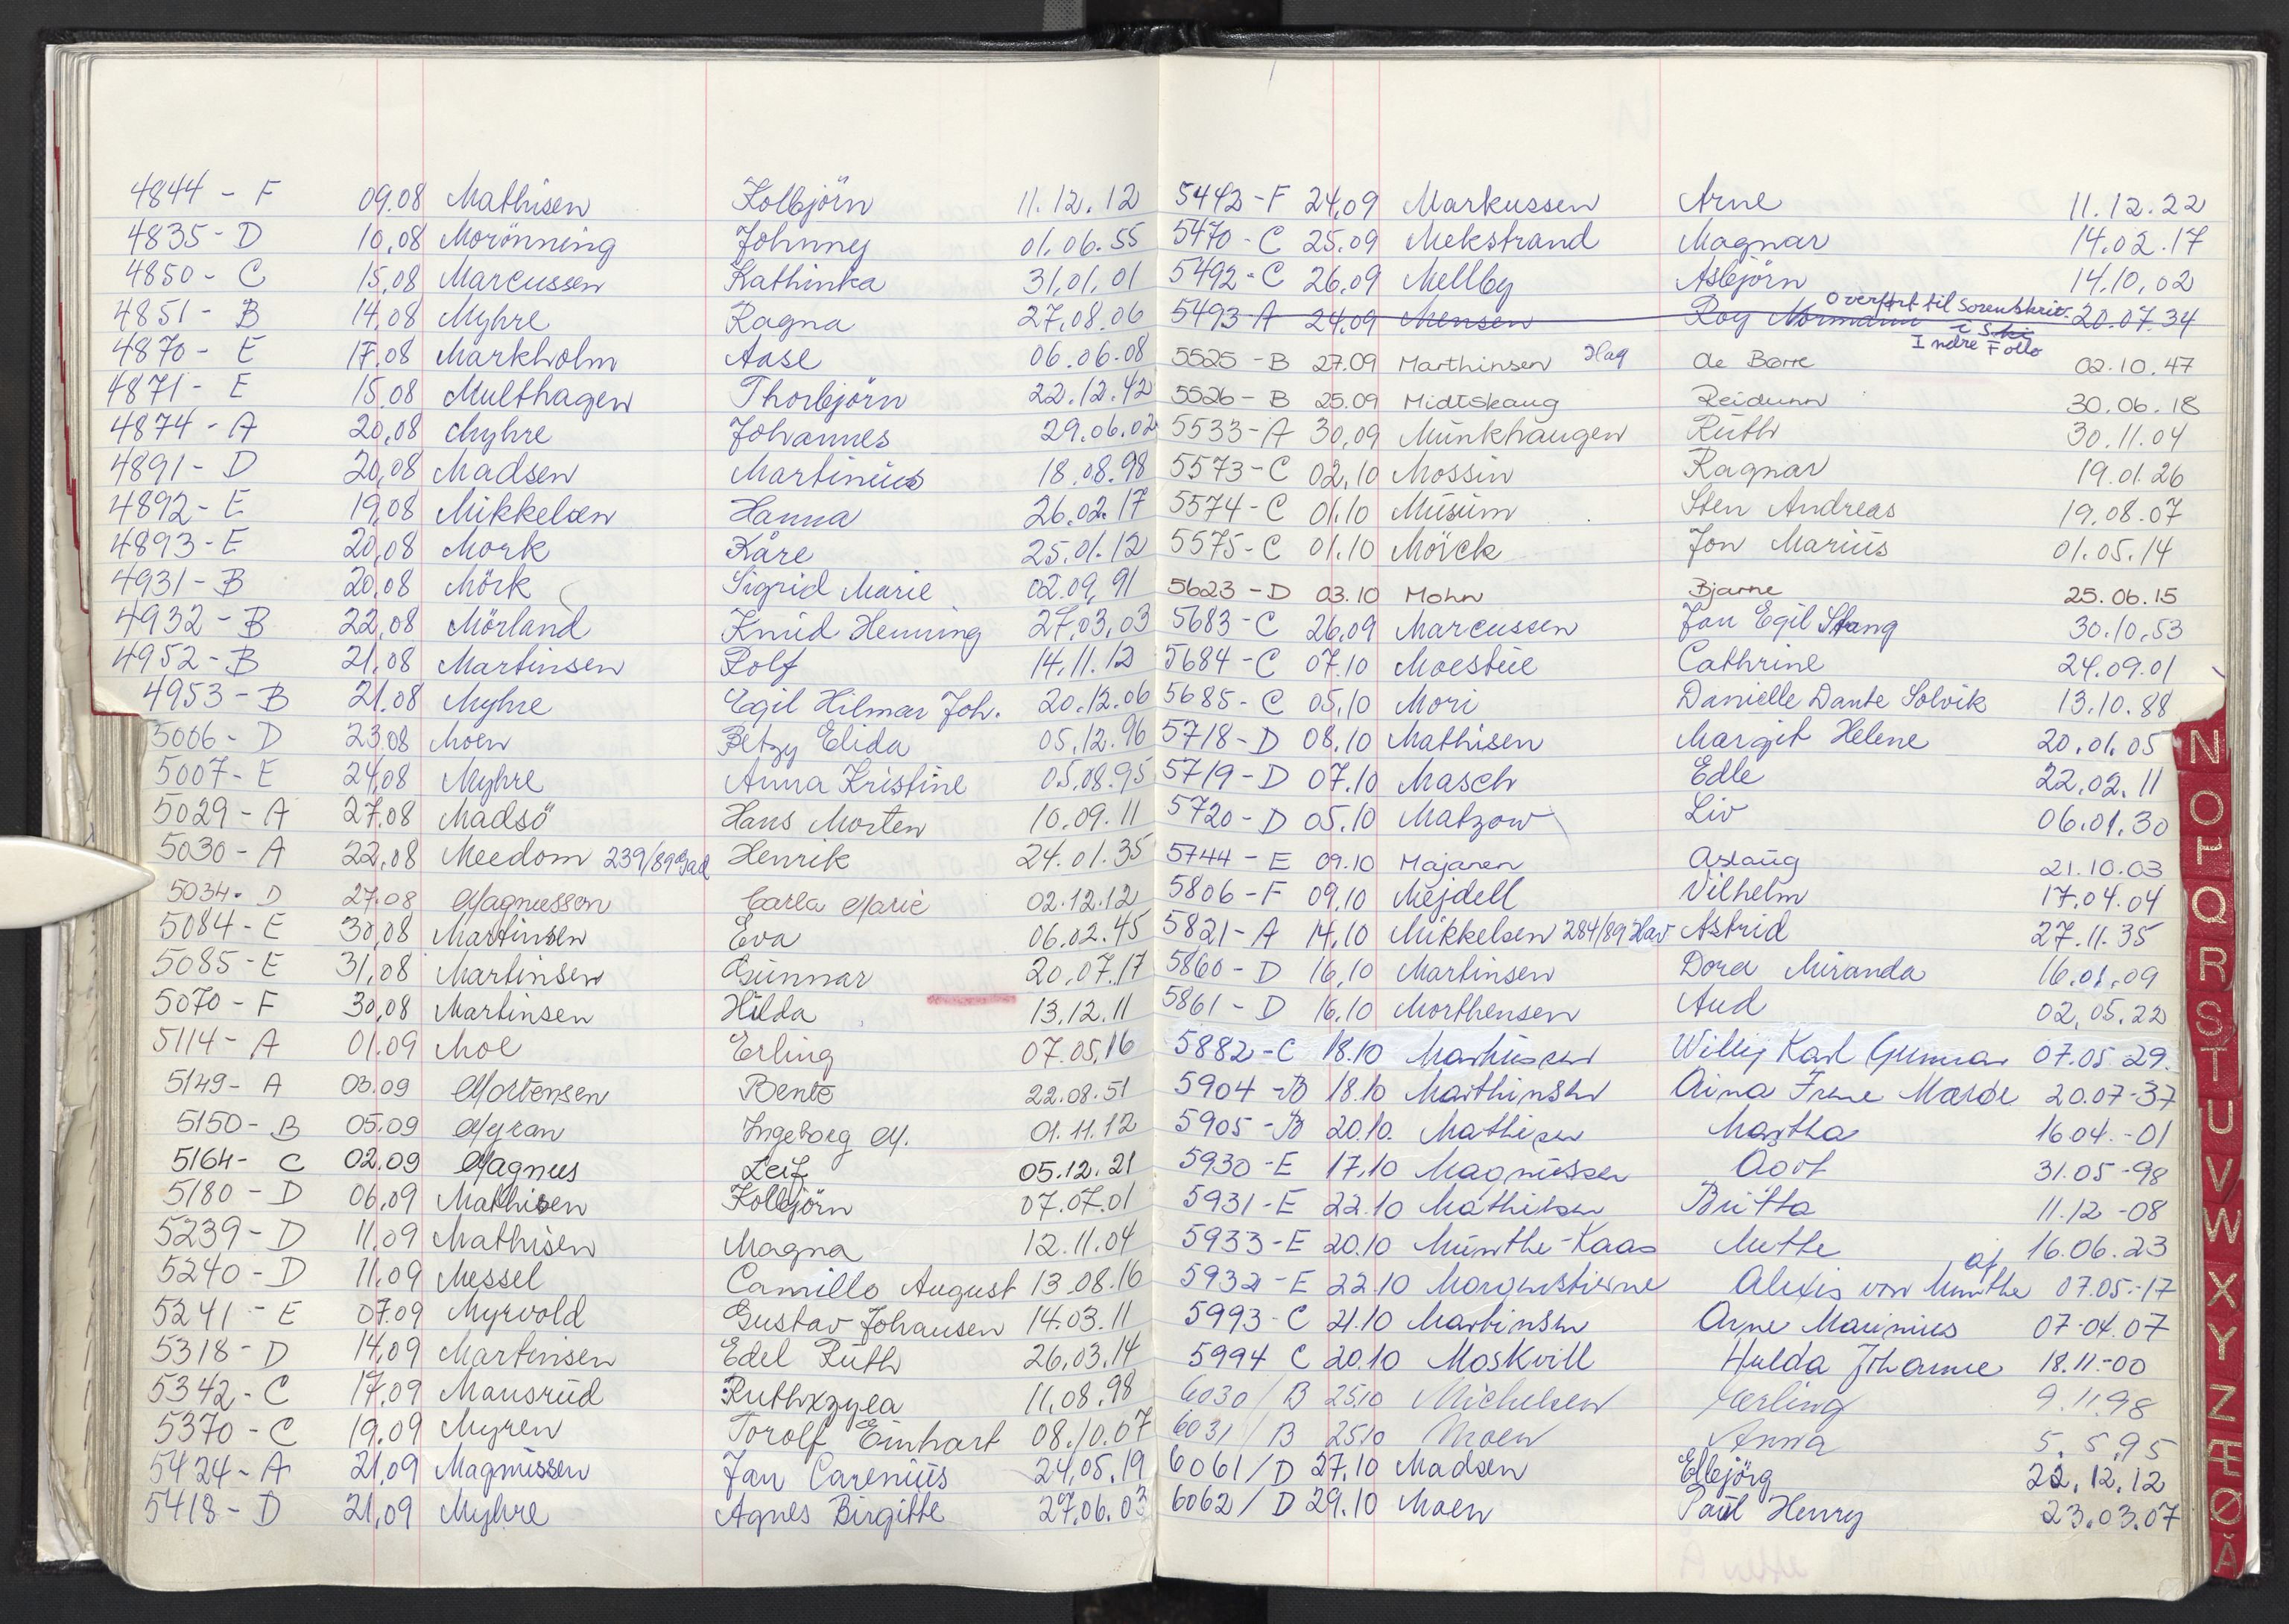 4844 - F 09.08 Mathisen Kolbjörn 11.12.12
4835 - D 10.08 Morönning Johnny 01.06.55
4850 - C 15.08 Marcussen Kathinka 31.01.01
4851 - B 14.08 Myhre Ragna 27.08.06
4870 - E 17.08 Markholm Aase 06.06.08
4871 - E 15.08 Multhagen Thorbjörn 22.12.42
4874 - A 20.08 Myhre Johannes 29.06.02
4891 - D 20.08 Madsen Martinius 18.08.98
4892 - E 19.08 Mikkelsen Hanna 26.02.17
4893 - E 20.08 Mork Kåre 25.01.12
4931 - B 20.08 Mörk Sigrid Marie 02.09.91
4932 - B 22.08 Mörland Knud Henning 27.03.03
4952 - B 21.08 Martinsen Rolf 14.11.12
4953 - B 21.08 Myhre Egil Hilmar Joh. 20.12.06
5006 - D 23.08 Moen Betzy Elida 05.12.96
5007 - E 24.08 Myhre Anna Kristine 05.08.95
5029 - A 27.08 Madsö Hans Morten 10.09.11
5030 - A 22.08 Meedom 239/89 Henrik 24.01.35
5034 - D 27.08 Magnussen Carla Marie 02.12.12
5084 - E 30.08 Martinsen Eva 06.02.45
5085 - E 31.08 Martinsen Gunnar 20.07.17
5070 - F 30.08 Martinsen Hilda 13.12.11
5114 - A 01.09 Moe Erling 07.05.16
5149 - A 03.09 Mortensen Bente 22.08.51
5150 - B 05.09 Myran Ingeborg M. 01.11.12
5164 - C 02.09 Magnus Leif 05.12.21
5180 - D 06.09 Mathisen Kolbjörn 07.07.01
5239 - D 11.09 Mathisen Magna 12.11.04
5240 - D 11.09 Messel Camillo August 13.08.16
5241 - E 07.09 Myrvold Gustav Johansen 14.03.11
5318 - D 14.09 Martinsen Edel Ruth 26.03.14
5342 - C 17.09 Mausrud 11.08.98
5370 - C 19.09 Myren Torolf Einhart 08.10.07
5424 - A 21.09 Magnussen Jan Carenius 24.05.19
5418 - D 21.09 Myhre Agnes Birgitte 27.06.03
5442 - F 24.09 Markussen Arne 11.12.22
5470 - C 25.09 Mekstrand Magnar 14.02.17
5492 - C 26.09 Mellby Asbjörn 14.10.02
Overfört til Sorenskriv.
5493 A 24.09 Mensen Roy Normann 20.07.34
i Ski
Indre Follo
5525 - B 27.09 Marthinsen Hag de Barre 02.10.47
5526 - B 25.09 Midtskaug Reidunn 30.06.18
5533 - A 30.09 Munkhaugen Ruth 30.11.04
5573 - C 02.10 Mossin Ragnar 19.01.26
5574 - C 01.10 Musum Sten Andreas 19.08.07
5575 - C 01.10 Mörck Jon Marius 01.05.14
5623 - D 03.10 Mohn Bjarne 25.06.15
5683 - C 26.09 Marcussen Jan Egil Stang 30.10.53
5684 - C 07.10 Moestue Cathrine 24.09.01
5685 - C 05.10 Mori Danielle Dante Solvik 13.10.88
5718 - D 08.10 Mathisen Margit Helene 20.01.05
5719 - D 07.10 Masch Edle 22.02.11
5720 - D 05.10 Matzow Liv 06.01.30
5744 - E 09.10 Majanen Aslaug 21.10.03
5806 - F 09.10 Mejdell Vilhelm 17.04.04
5821 - A 14.10 Mikkelsen 284/89 Hav Astrid 27.11.35
5860 - D 16.10 Martinsen Dora Miranda 16.01.09
5861 - D 16.10 Morthensen Aud 02.05.22
5882 - C 18.10 Markussen Willy Karl Gunnar 07.05 29.
5904 - B 18.10 Marthinsen Aina Irene 20.07-37
5905 - B 20.10. Mathisen Martha 16.04.-01
5930 - E 17.10 Magnussen 31.05 -98
5931 - E 22.10 Mathisen Britta 11.12 -08
5933 - E 20.10 Munthe-Kaas Mette 16.06.23
af
5932 - E 22.10 Morgenstierne Alexis von Munthe 07.05.-17
5993 - C 21.10 Martinsen Arne Marinius 07.04.07
5994 C 20.10 Moskvill Hulda Johanne 18.11.-00
6030 / B 25.10 Michelsen Erling 9.11.98
6031 / B 25.10 Moen Anna 5.5.95
6061 / D 27.10 Madsen Elbjörg 22.12.12
6062 / D 29.10 Moen Paul Henry 23.03.07
N
O
P
Q
R
S
T
U
V
W
X
Y
Z
Æ
Ø
Å